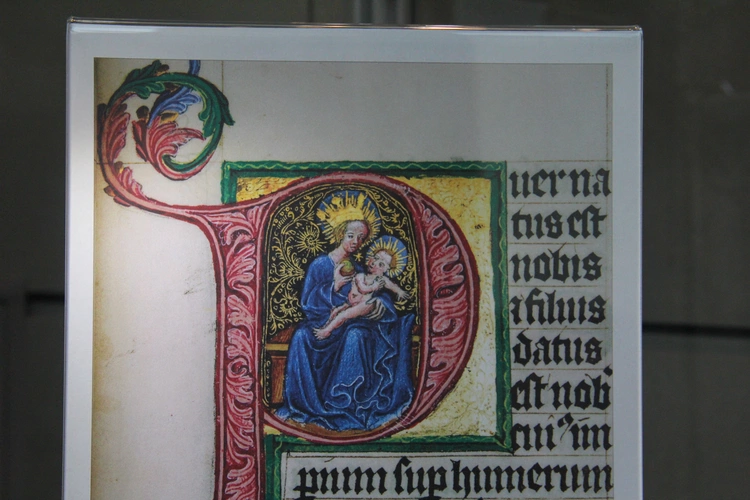 Puer na
tus est
nobis
⁊ filius
datus
est nob'
cui⁹ im
pium sup humerum